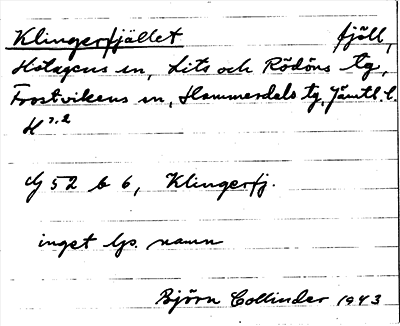 Klingerfjället fjäll,
Hotagens sn, Lits och Rödöns tg,
Frostvikens sn, Hammerdals tg, Jämtl. l.
52 b 6, Klingerfj.
inget lp. namn
Björn Collinder 1943